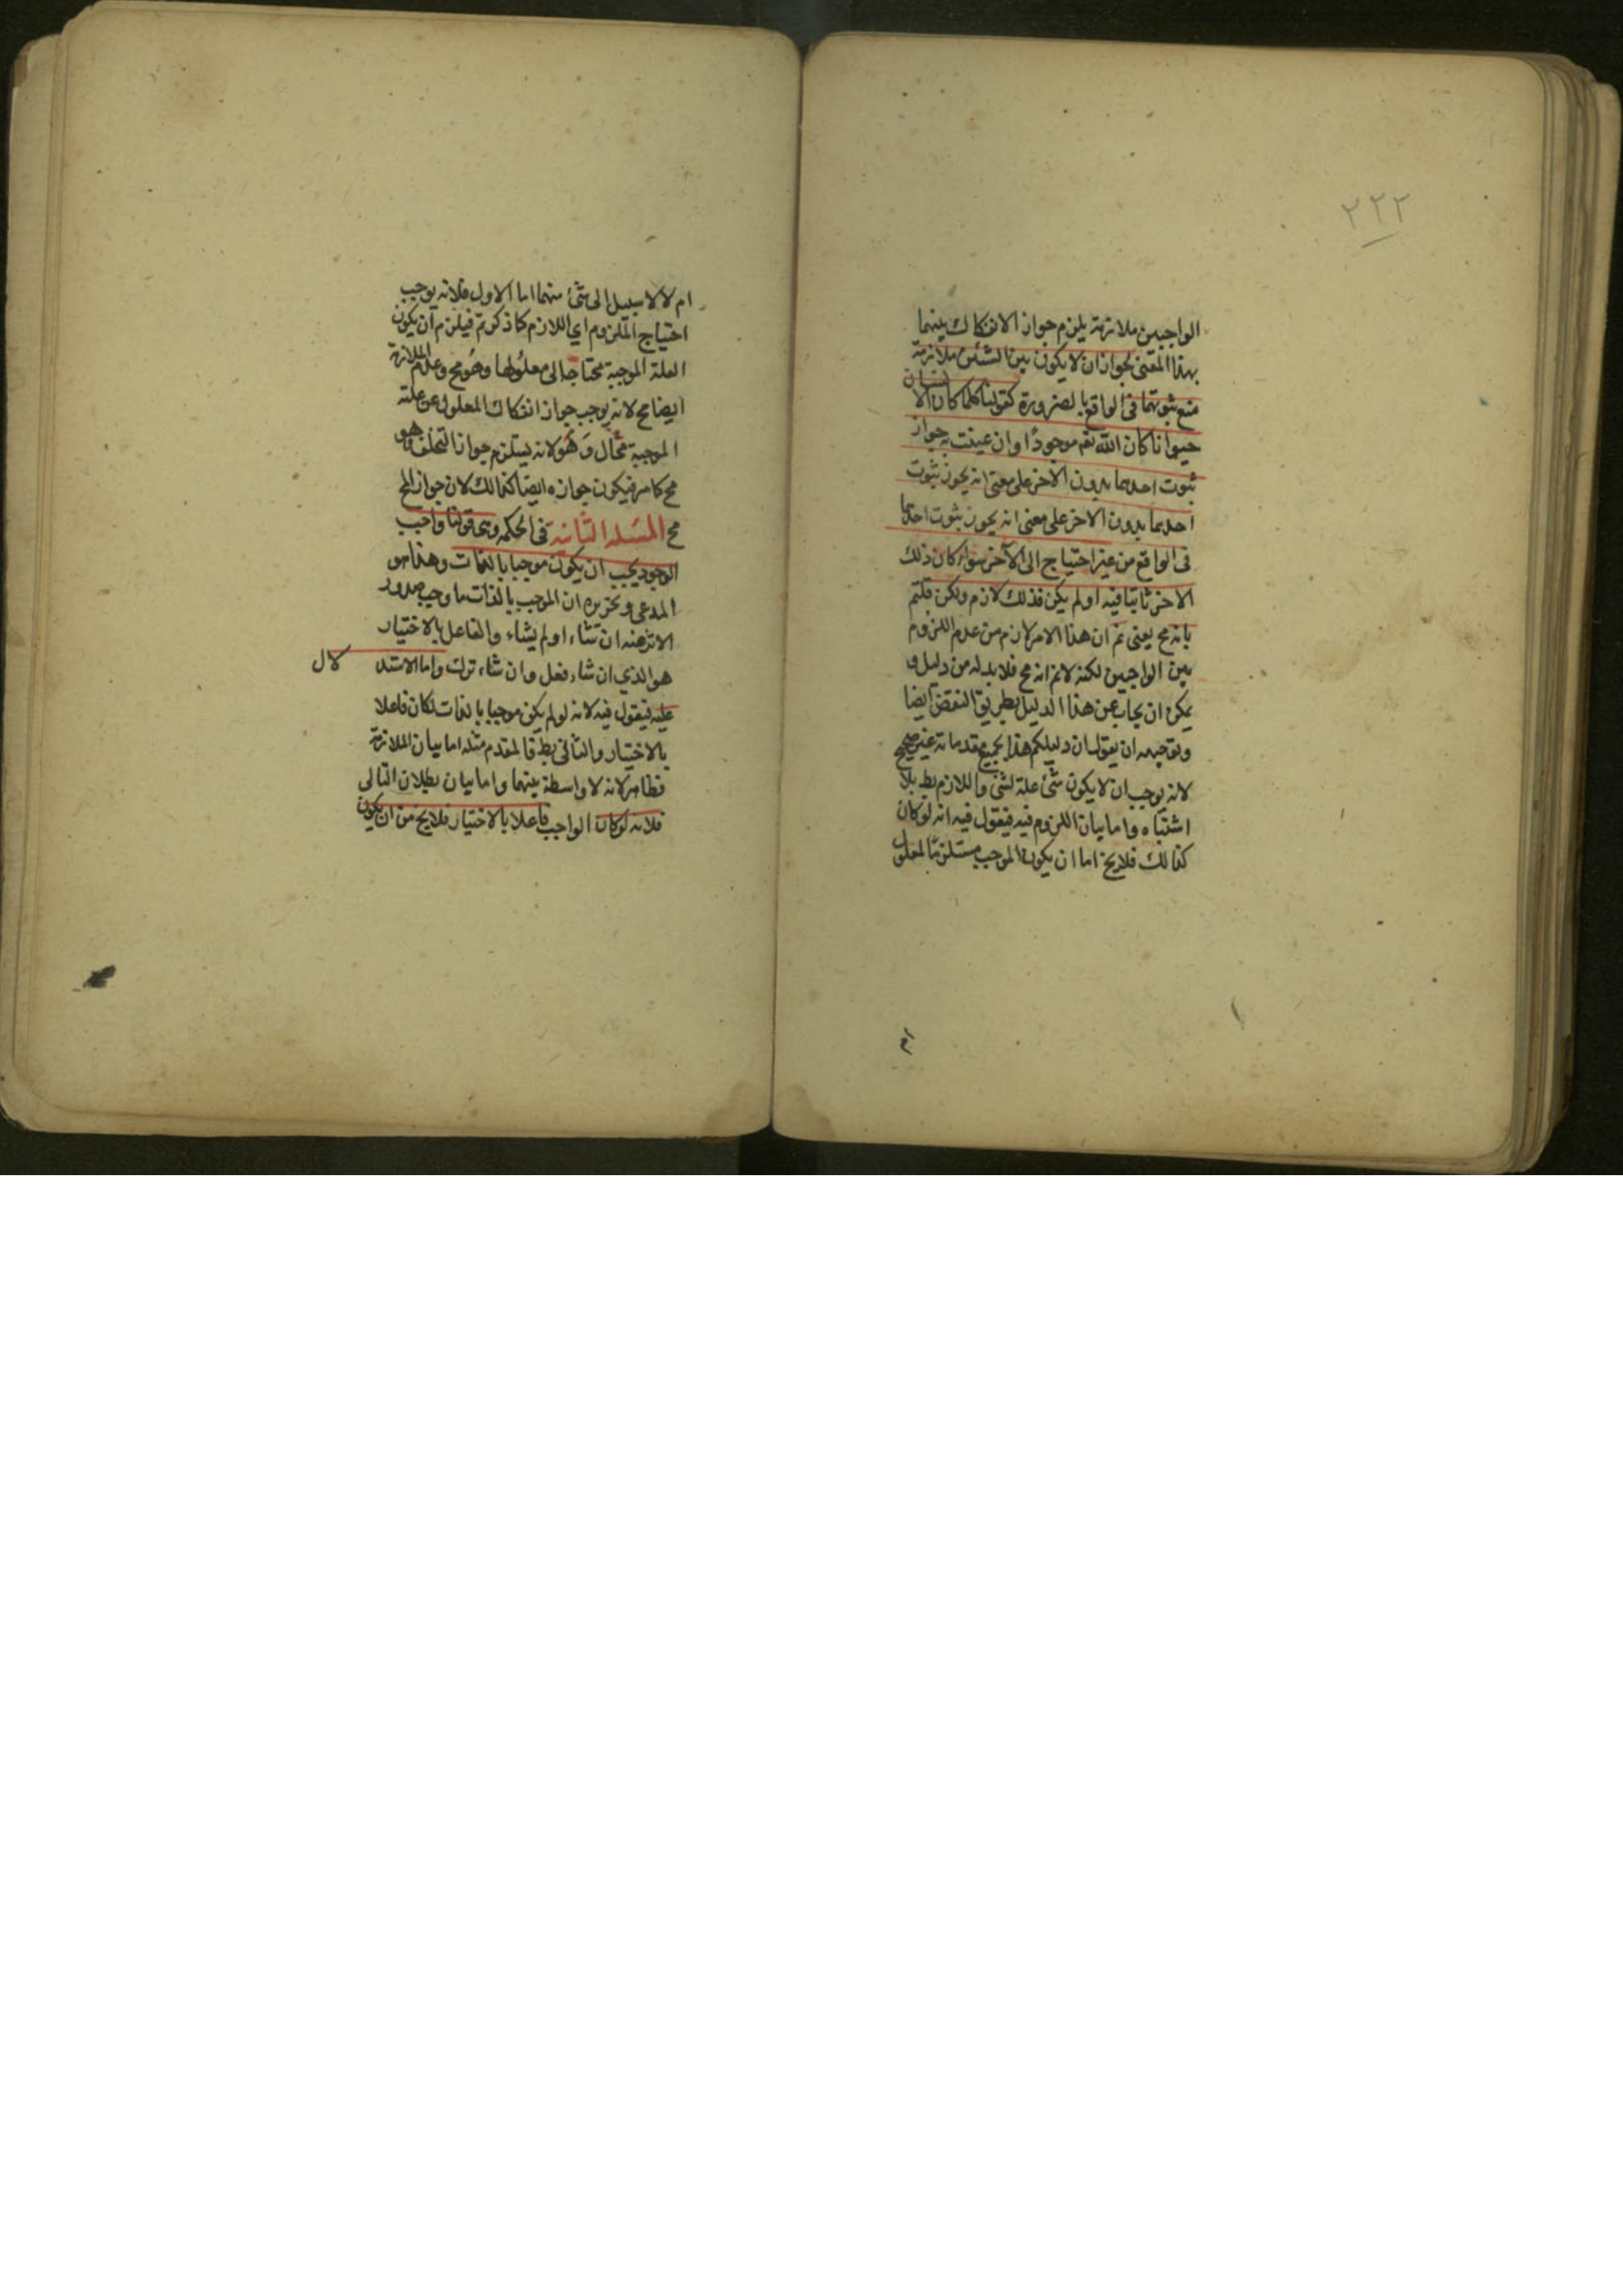 ٢٢٢
الواجبين ملازمة يلزم جواز الانفكاك بينهما
بهذا المعنى لجواز ان لا يكون بين الشئين ملازمة
مع ثبوتهما فى الواقع بالضرورة كقولنا كلما كان الانسان
حيوانا كان الله تع موجودًا وان عينت به جواز
ثبوت احدهما بدون الاخر على معنى انه يجوز ثبوت
احدهما بدون الاخر على معنى انه يجوز ثبوت احدهما
فى الواقع من غير احتياج الى الآخر سواء كان ذلك
الاخر ثابتا فيه او لم يكن فذلك لازم ولكن قلتم
بانه مح يعنى ان هذا الامر لازم من عدم اللزوم
بين الواجبين لكنه لانم انه مح فلا بد له من دليل و
يمكن ان يجاب عن هذا الدليل بطريق النقض ايضا
وتوجيهه ان يقول ان دليلكم هذا بجميع مقدماته غير صحيح
لانه يوجب ان لا يكون شئ علة لشئ واللازم بط بلا
اشتباه واما بيان اللزوم فيه فيقول فيه انه لو كان
كذالك فلا يخ اما ان يكون الموجب مستلزمًا لمعلول
ام
ام لا لا سبيل الى شئ منهما اما الاول فلانه يوجب
احتياج الملزوم اي اللازم كما ذكرتم فيلزم ان يكون
العلة الموجبة محتاجا الى معلولها وهُو مح وعدم الملازمة
ايضا مح لانه يوجب جواز انفكاك المعلول عن علته
الموجبة محال وَهُوَ لانه يستلزم جواز التخلف وهو
مح كما مر فيكون جوازه ايضا كذالك لان جواز المح
مح المسَئله الثانية فى الحكمه وهى قولنا واجب
الوجود يجب ان يكون موجبا بالذات وهذا هو
المدعى وتحريره ان الموجب بالذات ما وجب صدور
الاثر عنه ان شاء او لم يشاء والفاعل بالاختيار
هو الذي ان شاء فعل وان شاء ترك واما الاستدلال
عليه فيقول فيه لانه لو لم يكن موجبا بالذات لكان فاعلا
بالاختيار والثانى بط فالمقدم مثله اما بيان الملازمة
فظاهر لانه لا واسطة بينهما واما بيان بطلان التالى
فلانه لو كان الواجب فاعلا بالاختيار فلا يخ من ان يكون